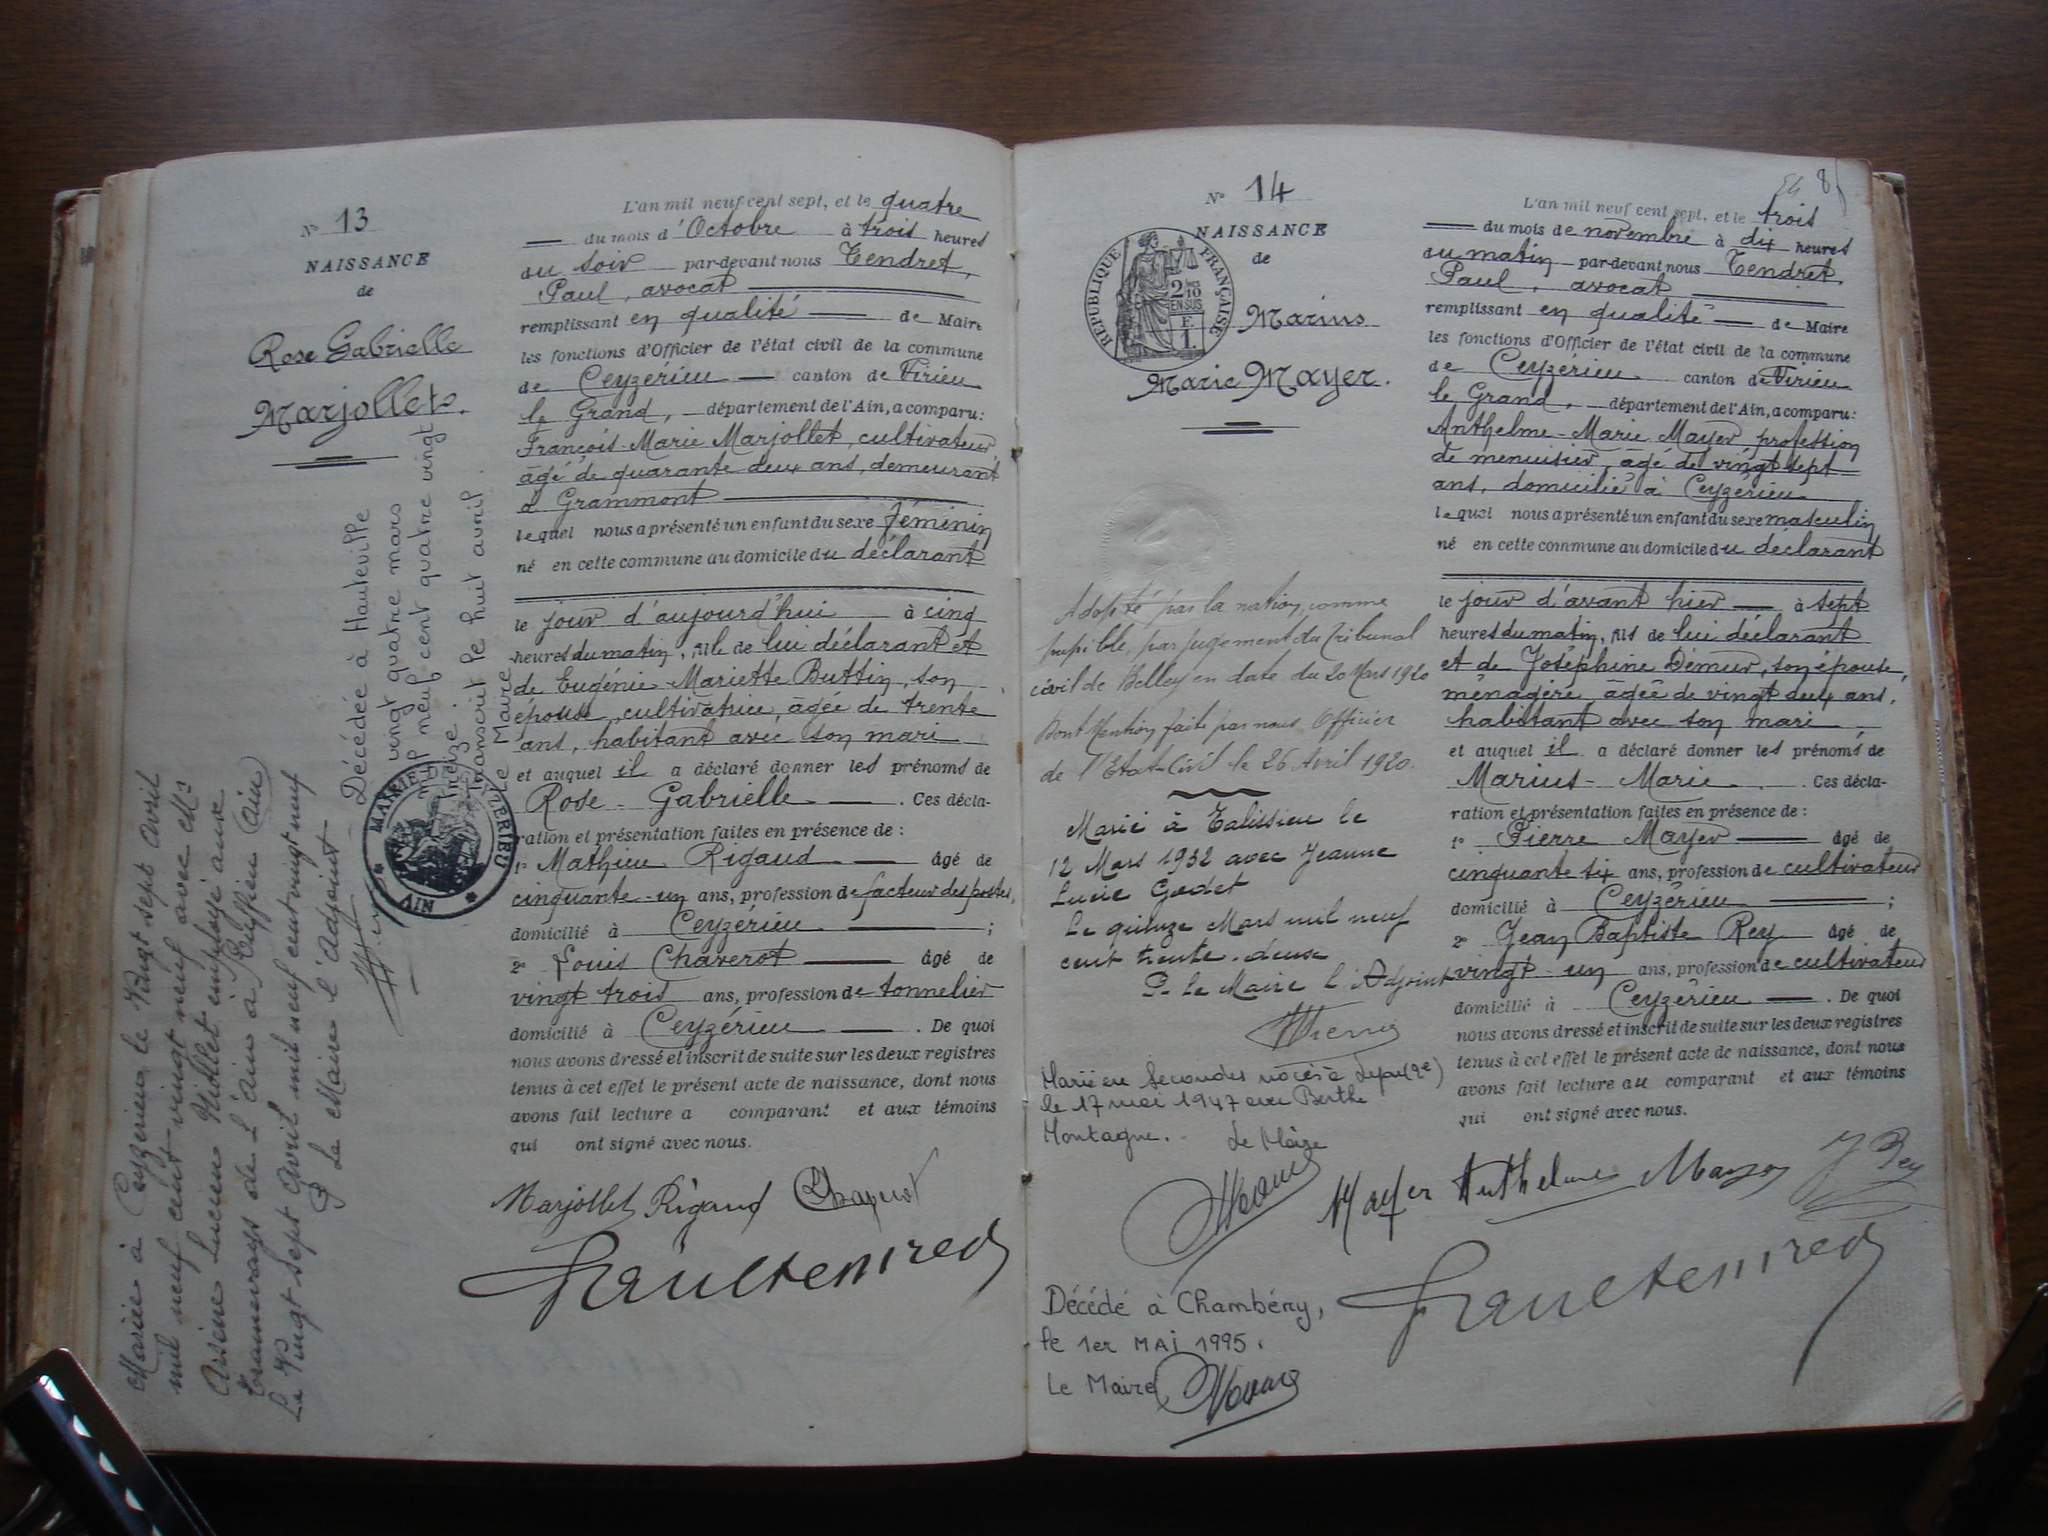 N° 13
NAISSANCE
de
Rose Gabrielle
Marjollet.
L'an mil neuf cent sept, et le quatre
du mois d'Octobre à trois heures
du soir par-devant nous Tendret,
Paul, avocat
remplissant en qualité de Maire
les fonctions d'Officier de l'état civil de la commune
de Ceyzérieu canton de Virieu
le Grand, département de l'Ain, a comparu:
François-Marie Marjollet, cultivateur,
âgé de quarante deux ans, demeurant
à Grammont
lequel nous a présenté un enfant du sexe féminin
né en cette commune au domicile du déclarant
le jour d'aujourd'hui à cinq
heures du matin, fille de lui déclarant et
de Eugénie Mariette Buttin, son
épouse, cultivatrice, âgée de trente
ans, habitant avec son mari
et auquel il a déclaré donner les prénoms de
Rose-Gabrielle. Ces décla-
ration et présentation faites en présence de :
1° Mathieu Rigaud âgé de
cinquante-un ans, profession de facteur des postes,
domicilié à Ceyzérieu ;
2° Louis Chaverot âgé de
vingt trois ans, profession de tonnelier
domicilié à Ceyzérieu. De quoi
nous avons dressé et inscrit de suite sur les deux registres
tenus à cet effet le présent acte de naissance, dont nous
avons fait lecture a comparant et aux témoins
qui ont signé avec nous.
Marjollet Rigaud
Marié à Ceyzérieu le Vingt sept Avril
mil neuf cent vingt neuf avec Mr
Arsène Lucien employé aux
Tramways de l'Ain à Ruffieu (Ain)
Le Vingt sept Avril mil neuf cent vingt neuf
P. le Maire l'Adjoint
Décédée à Hauteville
vingt quatre mars
mil neuf cent quatre vingt
treize.
Transcrit le huit avril.
Le Maire
MAIRIE DE CEYZERIEU
* AIN *
84
N° 14
NAISSANCE
de
REPUBLIQUE FRANÇAISE
2/10
EN SUS
F.
1.
Marius
Marie Mayer.
L'an mil neuf cent sept, et le trois
du mois de novembre à dix heures
du matin par-devant nous Tendret,
Paul, avocat
remplissant en qualité de Maire
les fonctions d'Officier de l'état civil de la commune
de Ceyzérieu canton de Virieu
le Grand, département de l'Ain, a comparu:
Anthelme-Marie Mayer, profession
de menuisier, âgé de vingt sept
ans, domicilié à Ceyzérieu
lequel nous a présenté un enfant du sexe masculin
né en cette commune au domicile du déclarant
le jour d'avant hier à sept
heures du matin, fils de lui déclarant
et de Joséphine Démeur, son épouse,
ménagère, âgée de vingt deux ans,
habitant avec son mari
et auquel il a déclaré donner les prénoms de
Marius-Marie. Ces décla-
ration et présentation faites en présence de :
1° Pierre Mayer âgé de
cinquante six ans, profession de cultivateur
domicilié à Ceyzérieu ;
2° Jean Baptiste Rey âgé de
vingt-un ans, profession de cultivateur
domicilié à Ceyzérieu. De quoi
nous avons dressé et inscrit de suite sur les deux registres
tenus à cet effet le présent acte de naissance, dont nous
avons fait lecture au comparant et aux témoins
qui ont signé avec nous.
Mayer Anthelme Mayer J Rey
Adopté par la nation, comme
pupille, par jugement du Tribunal
civil de Belley en date du 20 Mars 1920
Dont Mention faite par nous Officier
de l'Etat-Civil le 26 Avril 1920.
Marié à Talissieu le
12 Mars 1932 avec Jeanne
Lucie Godet
Le quinze Mars mil neuf
cent trente-deux
P. le Maire l'Adjoint
Marié en secondes noces à (2e)
le 17 mai 1947 avec Berthe
Montagne.
Le Maire
Décédé à Chambéry,
le 1er MAI 1995.
Le Maire